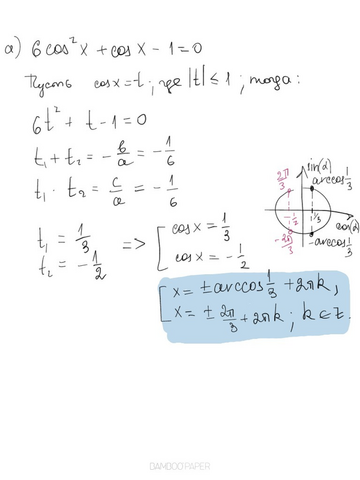 а) 6cos²x + cosx - 1 = 0
Пусть cosx = t; где |t| ≤ 1; тогда:
6t² + t - 1 = 0
t₁ + t₂ = - b/a = - 1/6
t₁ · t₂ = c/a = - 1/6
t₁ = 1/3
t₂ = - 1/2
=>
[ cosx = 1/3
cosx = - 1/2
sin(α)
2π/3
arccos 1/3
- 1/2
1/3
cos(α)
- 2π/3
-arccos 1/3
[ x = ± arccos 1/3 + 2πk,
x = ± 2π/3 + 2πk; k ∈ Z.
BAMBOO PAPER